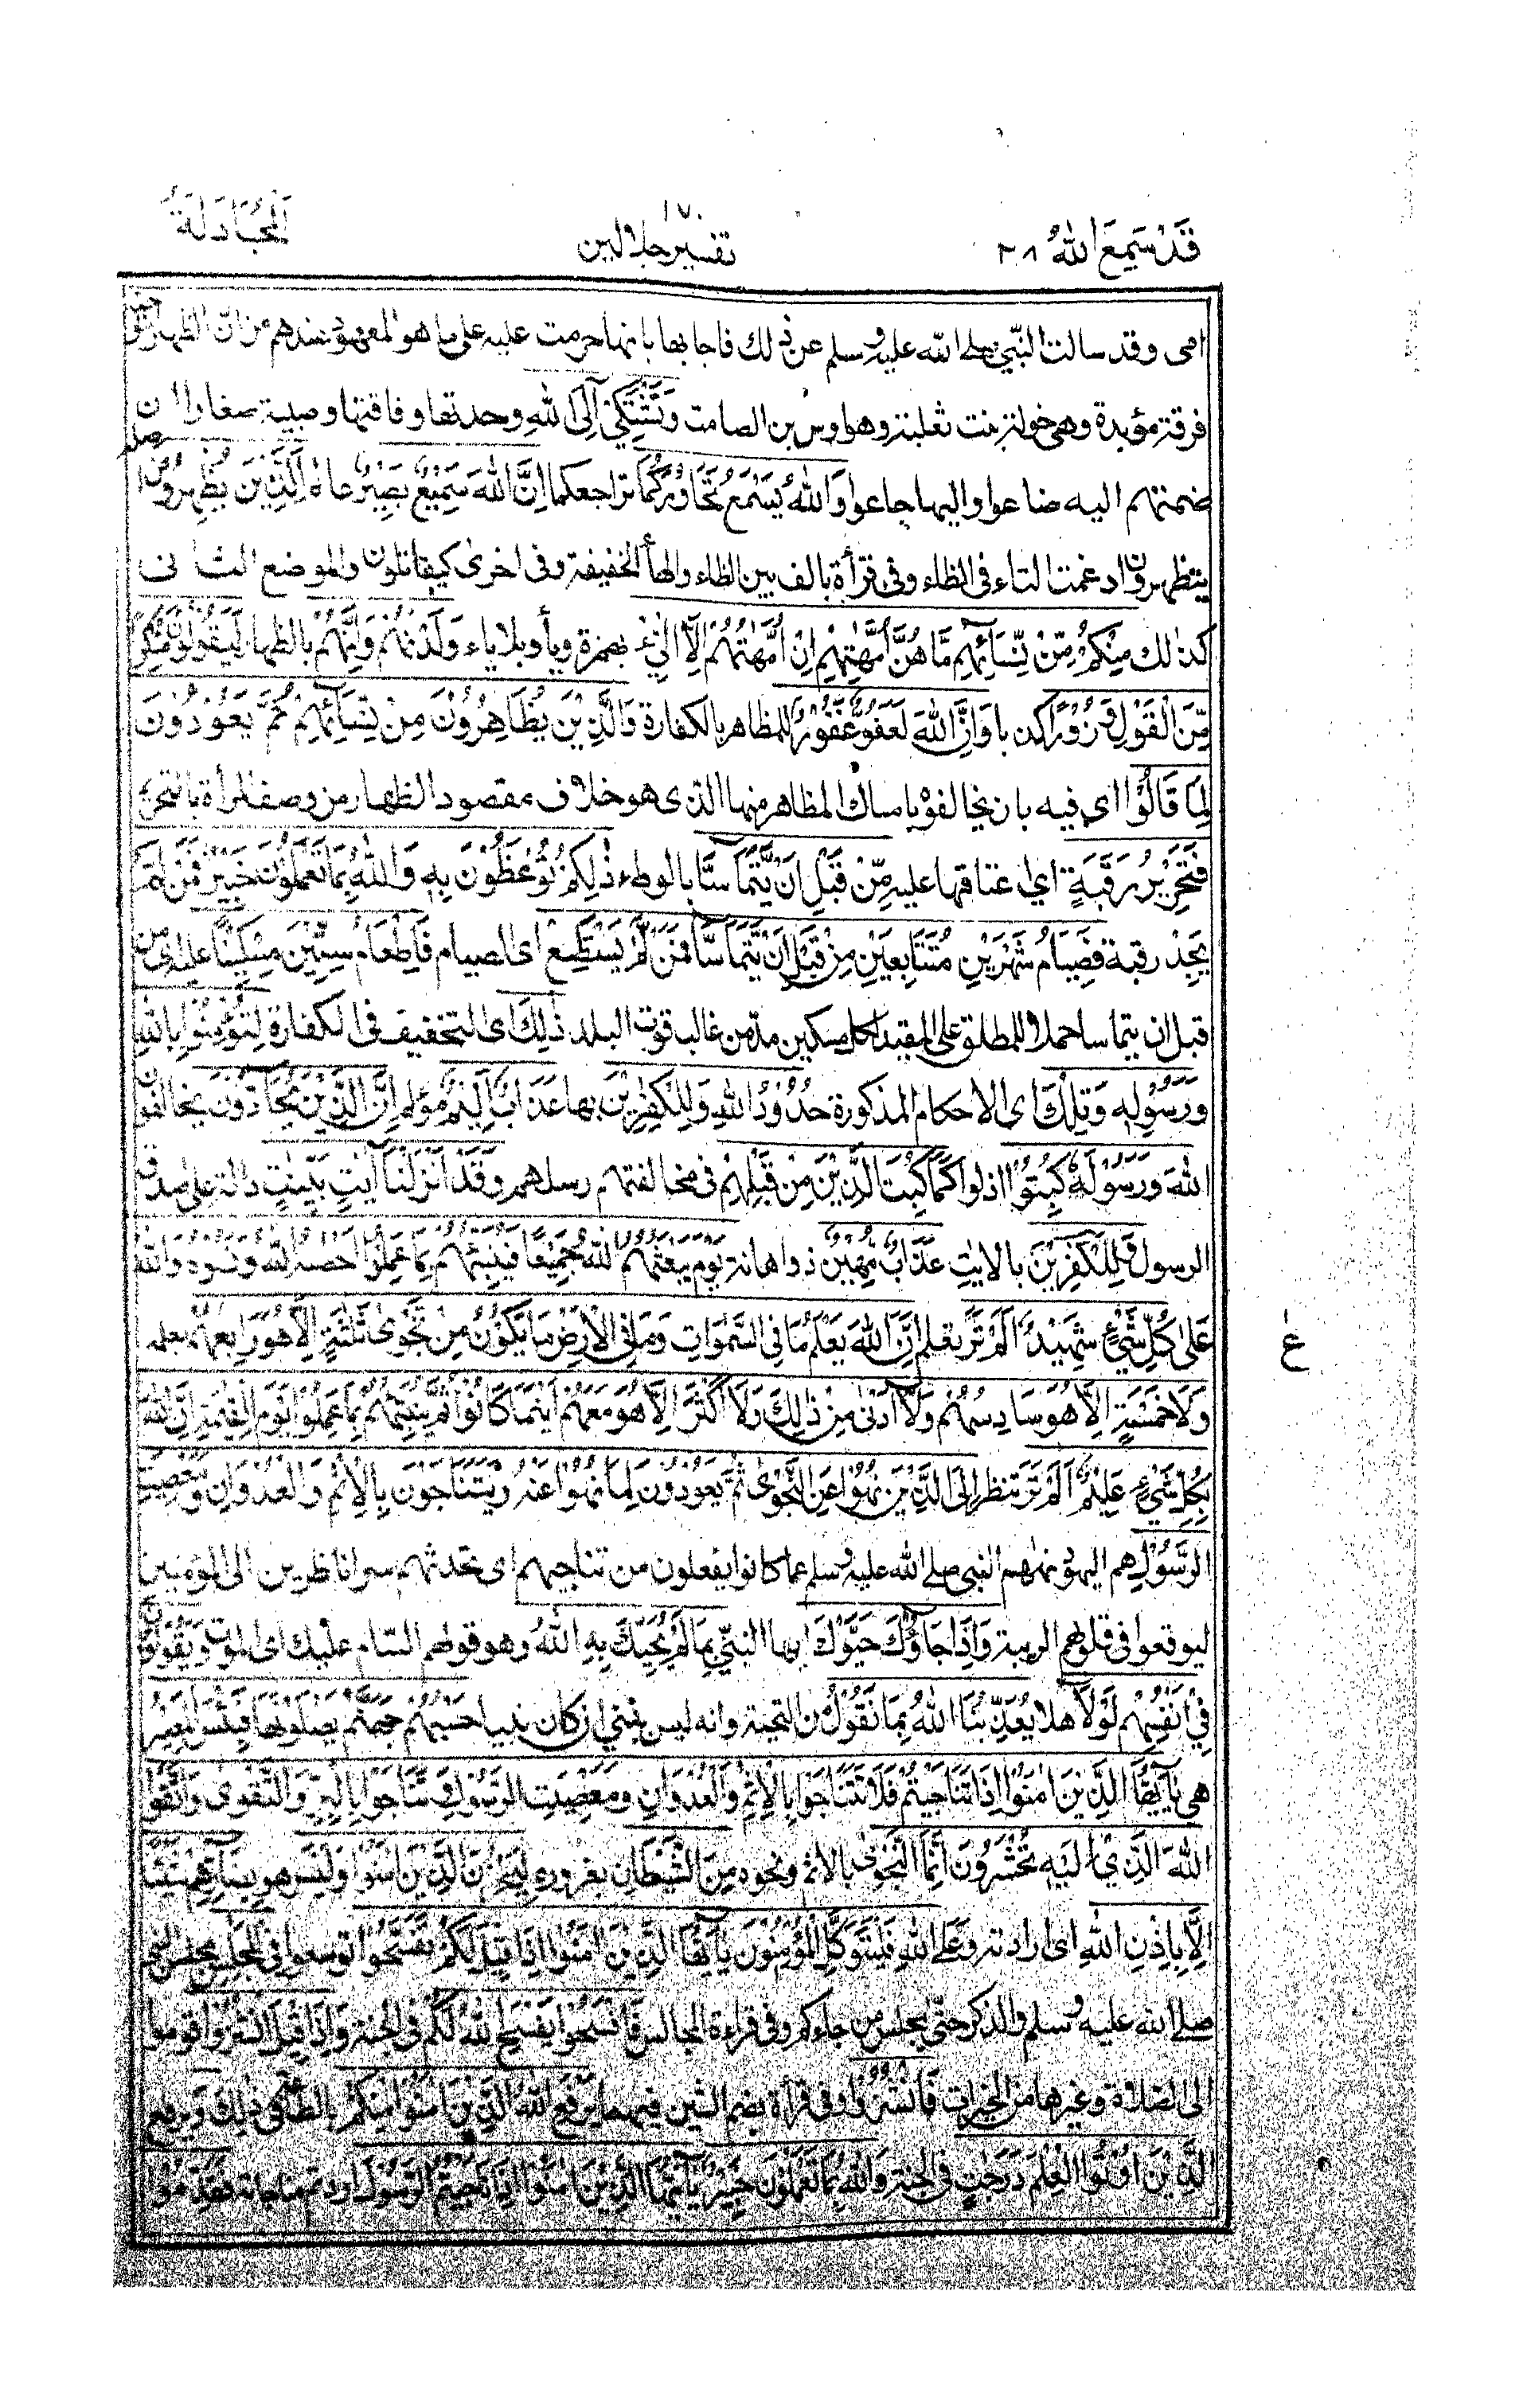 قَدْ سَمِعَ اللّٰهُ ٢٨
١٧٠
تفسیر جلالین
اَلْمُجَادَلَةُ
امى وقد سالت النّبي صلے الله عليه وسلم عن ذلك فاجابها بانها حرمت عليه على ما هو المعهود عندهم من ان الظهار
فرقة مؤبدة وهى خولة بنت ثعلبة وهو اوس بن الصامت وَتَشْتَكِيْٓ اِلَى اللّٰهِ وحدتها وفاقتها وصبية صغارا ان
ضمتهم اليه ضاعوا واليها جاعوا وَاللّٰهُ يَسْمَعُ تَحَاوُرَكُمَا تراجعكما اِنَّ اللّٰهَ سَمِيْعٌۢ بَصِيْرٌ عالم اَلَّذِيْنَ يُظٰهِرُوْنَ اصله
يتظهرون ادغمت التاء فى الظاء وفى قرأة بالف بين الظاء والهاٴ الخفيفة وفى اخرى كيقاتلون والموضع الثانى
كذٰلك مِنْكُمْ مِّنْ نِّسَآئِهِمْ مَّا هُنَّ اُمَّهٰتِهِمْ اِنْ اُمَّهٰتُهُمْ اِلَّا الّٰٓئِيْ بهمزة وياٴ وبلا ياء وَلَدْنَهُمْ وَاِنَّهُمْ بالظهار لَيَقُوْلُوْنَ مُنْكَرًا
مِّنَ الْقَوْلِ وَزُوْرًا كذبا وَاِنَّ اللّٰهَ لَعَفُوٌّ غَفُوْرٌ للمظاهر بالكفارة وَالَّذِيْنَ يُظَاهِرُوْنَ مِنْ نِّسَآئِهِمْ ثُمَّ يَعُوْدُوْنَ
لِمَا قَالُوْا اى فيه بان يخالفوه باساك المظاهر منها الذى هو خلاف مقصود الظهار من وصف المرأة بالتحريم
فَتَحْرِيْرُ رَقَبَةٍ اى اعتاقها عليه مِّنْ قَبْلِ اَنْ يَّتَمَآسَّا بالوطء ذٰلِكُمْ تُوْعَظُوْنَ بِهٖ وَاللّٰهُ بِمَا تَعْمَلُوْنَ خَبِيْرٌ فَمَنْ لَّمْ
يَجِدْ رقبة فَصِيَامُ شَهْرَيْنِ مُتَتَابِعَيْنِ مِنْ قَبْلِ اَنْ يَّتَمَآسَّا فَمَنْ لَّمْ يَسْتَطِعْ اى الصيام فَاِطْعَامُ سِتِّيْنَ مِسْكِيْنًا عليه اى من
قبل ان يتماسا حملا للمطلق على المقيد لكل مسكين مد من غالب قوت البلد ذٰلِكَ اى التخفيف فى الكفارة لِتُؤْمِنُوْا بِاللّٰهِ
وَرَسُوْلِهٖ وَتِلْكَ اى الاحكام المذكورة حُدُوْدُ اللّٰهِ وَلِلْكٰفِرِيْنَ بها عَذَابٌ اَلِيْمٌ مؤلم اِنَّ الَّذِيْنَ يُحَآدُّوْنَ يخالفون
اللّٰهَ وَرَسُوْلَهٗ كُبِتُوْا اذلوا كَمَا كُبِتَ الَّذِيْنَ مِنْ قَبْلِهِمْ فى مخالفتهم رسلهم وَقَدْ اَنْزَلْنَآ اٰيٰتٍۭ بَيِّنٰتٍ دالة على صدق
الرسول وَلِلْكٰفِرِيْنَ بالايٰتِ عَذَابٌ مُّهِيْنٌ ذو اهانة يَوْمَ يَبْعَثُهُمُ اللّٰهُ جَمِيْعًا فَيُنَبِّئُهُمْ بِمَا عَمِلُوْا اَحْصٰىهُ اللّٰهُ وَنَسُوْهُ وَاللّٰهُ
عَلٰى كُلِّ شَيْءٍ شَهِيْدٌ اَلَمْ تَرَ تعلم اَنَّ اللّٰهَ يَعْلَمُ مَا فِى السَّمٰوَاتِ وَمَا فِى الْاَرْضِ مَا يَكُوْنُ مِنْ نَّجْوٰى ثَلٰثَةٍ اِلَّا هُوَ رَابِعُهُمْ بعلمه
ع
وَلَا خَمْسَةٍ اِلَّا هُوَ سَادِسُهُمْ وَلَآ اَدْنٰى مِنْ ذٰلِكَ وَلَآ اَكْثَرَ اِلَّا هُوَ مَعَهُمْ اَيْنَمَا كَانُوْا ثُمَّ يُنَبِّئُهُمْ بِمَا عَمِلُوْا يَوْمَ الْقِيٰمَةِ اِنَّ اللّٰهَ
بِكُلِّ شَيْءٍ عَلِيْمٌ اَلَمْ تَرَ تنظر اِلَى الَّذِيْنَ نُهُوْا عَنِ النَّجْوٰى ثُمَّ يَعُوْدُوْنَ لِمَا نُهُوْا عَنْهُ وَيَتَنَاجَوْنَ بِالْاِثْمِ وَالْعُدْوَانِ وَمَعْصِيَتِ
الرَّسُوْلِ هم اليهود نهاهم النبى صلے الله عليه وسلم عما كانوا يفعلون من تناجيهم اى تحدثهم سرا ناظرين الى المؤمنين
ليوقعوا فى قلوبهم الريبة وَاِذَا جَآءُوْكَ حَيَّوْكَ ايها النبيّ بِمَا لَمْ يُحَيِّكَ بِهِ اللّٰهُ وهو قولهم السّام عليك اى الموت وَيَقُوْلُوْنَ
فِيْ اَنْفُسِهِمْ لَوْلَا هلا يُعَذِّبُنَا اللّٰهُ بِمَا نَقُوْلُ من التحية وانه ليس بنبي ان كان نبيا حَسْبُهُمْ جَهَنَّمُ يَصْلَوْنَهَا فَبِئْسَ الْمَصِيْرُ
هى يٰٓاَيُّهَا الَّذِيْنَ اٰمَنُوْا اِذَا تَنَاجَيْتُمْ فَلَا تَتَنَاجَوْا بِالْاِثْمِ وَالْعُدْوَانِ وَمَعْصِيَتِ الرَّسُوْلِ وَتَنَاجَوْا بِالْبِرِّ وَالتَّقْوٰى وَاتَّقُوا
اللّٰهَ الَّذِيْٓ اِلَيْهِ تُحْشَرُوْنَ اِنَّمَا النَّجْوٰى بالاثم ونحوه مِنَ الشَّيْطَانِ بغروره لِيَحْزُنَ الَّذِيْنَ اٰمَنُوْا وَلَيْسَ هو بِضَآرِّهِمْ شَيْئًا
اِلَّا بِاِذْنِ اللّٰهِ اى ارادته وَعَلَى اللّٰهِ فَلْيَتَوَكَّلِ الْمُؤْمِنُوْنَ يٰٓاَيُّهَا الَّذِيْنَ اٰمَنُوْا اِذَا قِيْلَ لَكُمْ تَفَسَّحُوْا توسعوا فِى الْمَجْلِسِ مجلس النبى
صلے الله عليه وسلم والذكر حتّى يجلس من جاءكم وفى قراءة المجالس فَافْسَحُوْا يَفْسَحِ اللّٰهُ لَكُمْ فى الجنة وَاِذَا قِيْلَ انْشُزُوْا قوموا
الى الصلاة وغيرها من الخيرات فَانْشُزُوْا وفى قرأة بضم الشين فيهما يَرْفَعِ اللّٰهُ الَّذِيْنَ اٰمَنُوْا مِنْكُمْ بالطاعة فى ذلك وَيرفع
الَّذِيْنَ اُوْتُوا الْعِلْمَ دَرَجٰتٍ فى الجنة وَاللّٰهُ بِمَا تَعْمَلُوْنَ خَبِيْرٌ يٰٓاَيُّهَا الَّذِيْنَ اٰمَنُوْٓا اِذَا نَاجَيْتُمُ الرَّسُوْلَ اردتم مناجاته فَقَدِّمُوْا